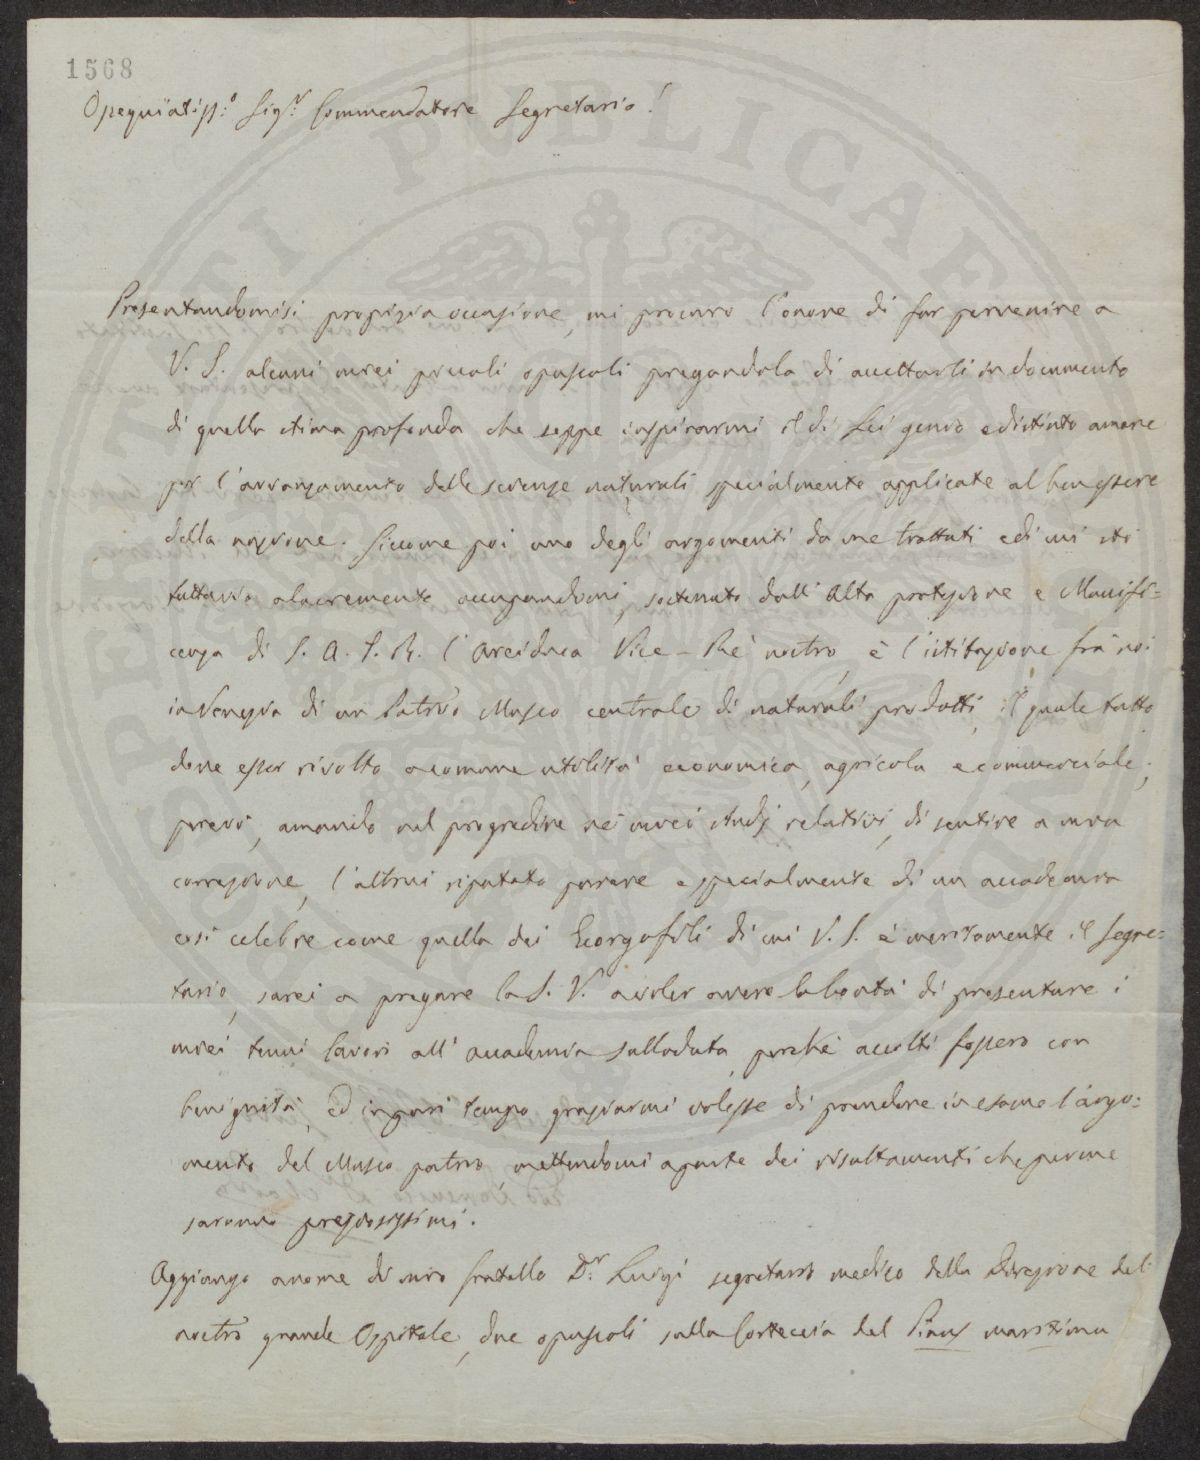 1568
Ossequiatiss:º Sig.r Commendatore Segretario!
Presentandomisi propizia occasione, mi procuro l'onore di far pervenire a
V. S. alcuni miei piccoli opuscoli pregandola di accettarli in documento
di quella stima profonda che seppe inspirarmi il di Lei genio e distinto amore
per l'avanzamento delle scienze naturali specialmente applicate al ben essere
della nazione. Siccome poi uno degli argomenti da me trattati e di cui sto
tuttavia alacremente occupandomi, sostenuto dall'Alta protezione e Munifi=
cenza di S. A. I. R. l'Arciduca Vice-Re nostro, è l'istituzione fra noi
in Venezia di un Patrio Museo centrale di naturali prodotti, il quale tutto
deve esser rivolto a comune utilità economica, agricola e commerciale;
perciò, amando nel progredire ne' miei studj relativi, di sentire a mia
correzione, l'altrui riputato parere e specialmente di un accademia
così celebre come quella dei Georgofili di cui V. S. è meritamente il Segre=
tario, sarei a pregare la S. V. a voler avere la bontà di presentare i
miei tenui lavori all'accademia sullodata, perchè accolti fossero con
benignità, ed in pari tempo graziarmi volesse di prendere in esame l'argo=
mento del Museo patrio, mettendomi a parte dei risultamenti che per me
saranno preziosissimi.
Aggiungo a nome di mio fratello D.r Luigi segretario medico della Direzione del
nostro grande Ospitale, due opuscoli sulla Corteccia del Pinus maritima
SPIRITI PUBLICAE